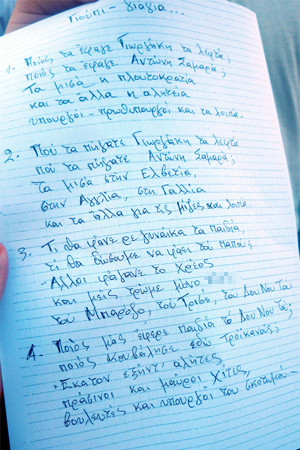 Γιούπι - γιαγια...
1. Ποιός τα έφαγε Γιωργάκη τα λεφτά;
ποιός τα έφαγε Αντώνη Σαμαρά;
Τα μισά η πλουτοκρατία
και τα άλλα η αλητεία
υπουργοί - πρωθυπουργοί και τα λοιπά.
2. Πού τα πήγατε Γιωργάκη τα λεφτά
πού τα πήγατε Αντώνη Σαμαρά;
τα μισά στην Ελβετία,
στην Αγγλία, στη Γαλλία
και τα άλλα για τις μίζες και λοιπά.
3. Τι θα φάνε ρε γυναίκα τα παιδιά,
τι θα δώσουμε να φάει του παπού;
Άλλοι φάγανε το Χρέος
και μεις τρώμε μόνο
του Μπαρόζο, του Τρισέ, του ΔουΝουΤου
4. Ποιός μας έφερε παιδιά το ΔουΝουΤου;
ποιός κουβάλησε εδώ τρόικανους;
Εκατόν εξήντα αλήτες,
πράσινοι και μαύροι Χίτες,
βουλευτές και υπουργοί του σκοτωμού -